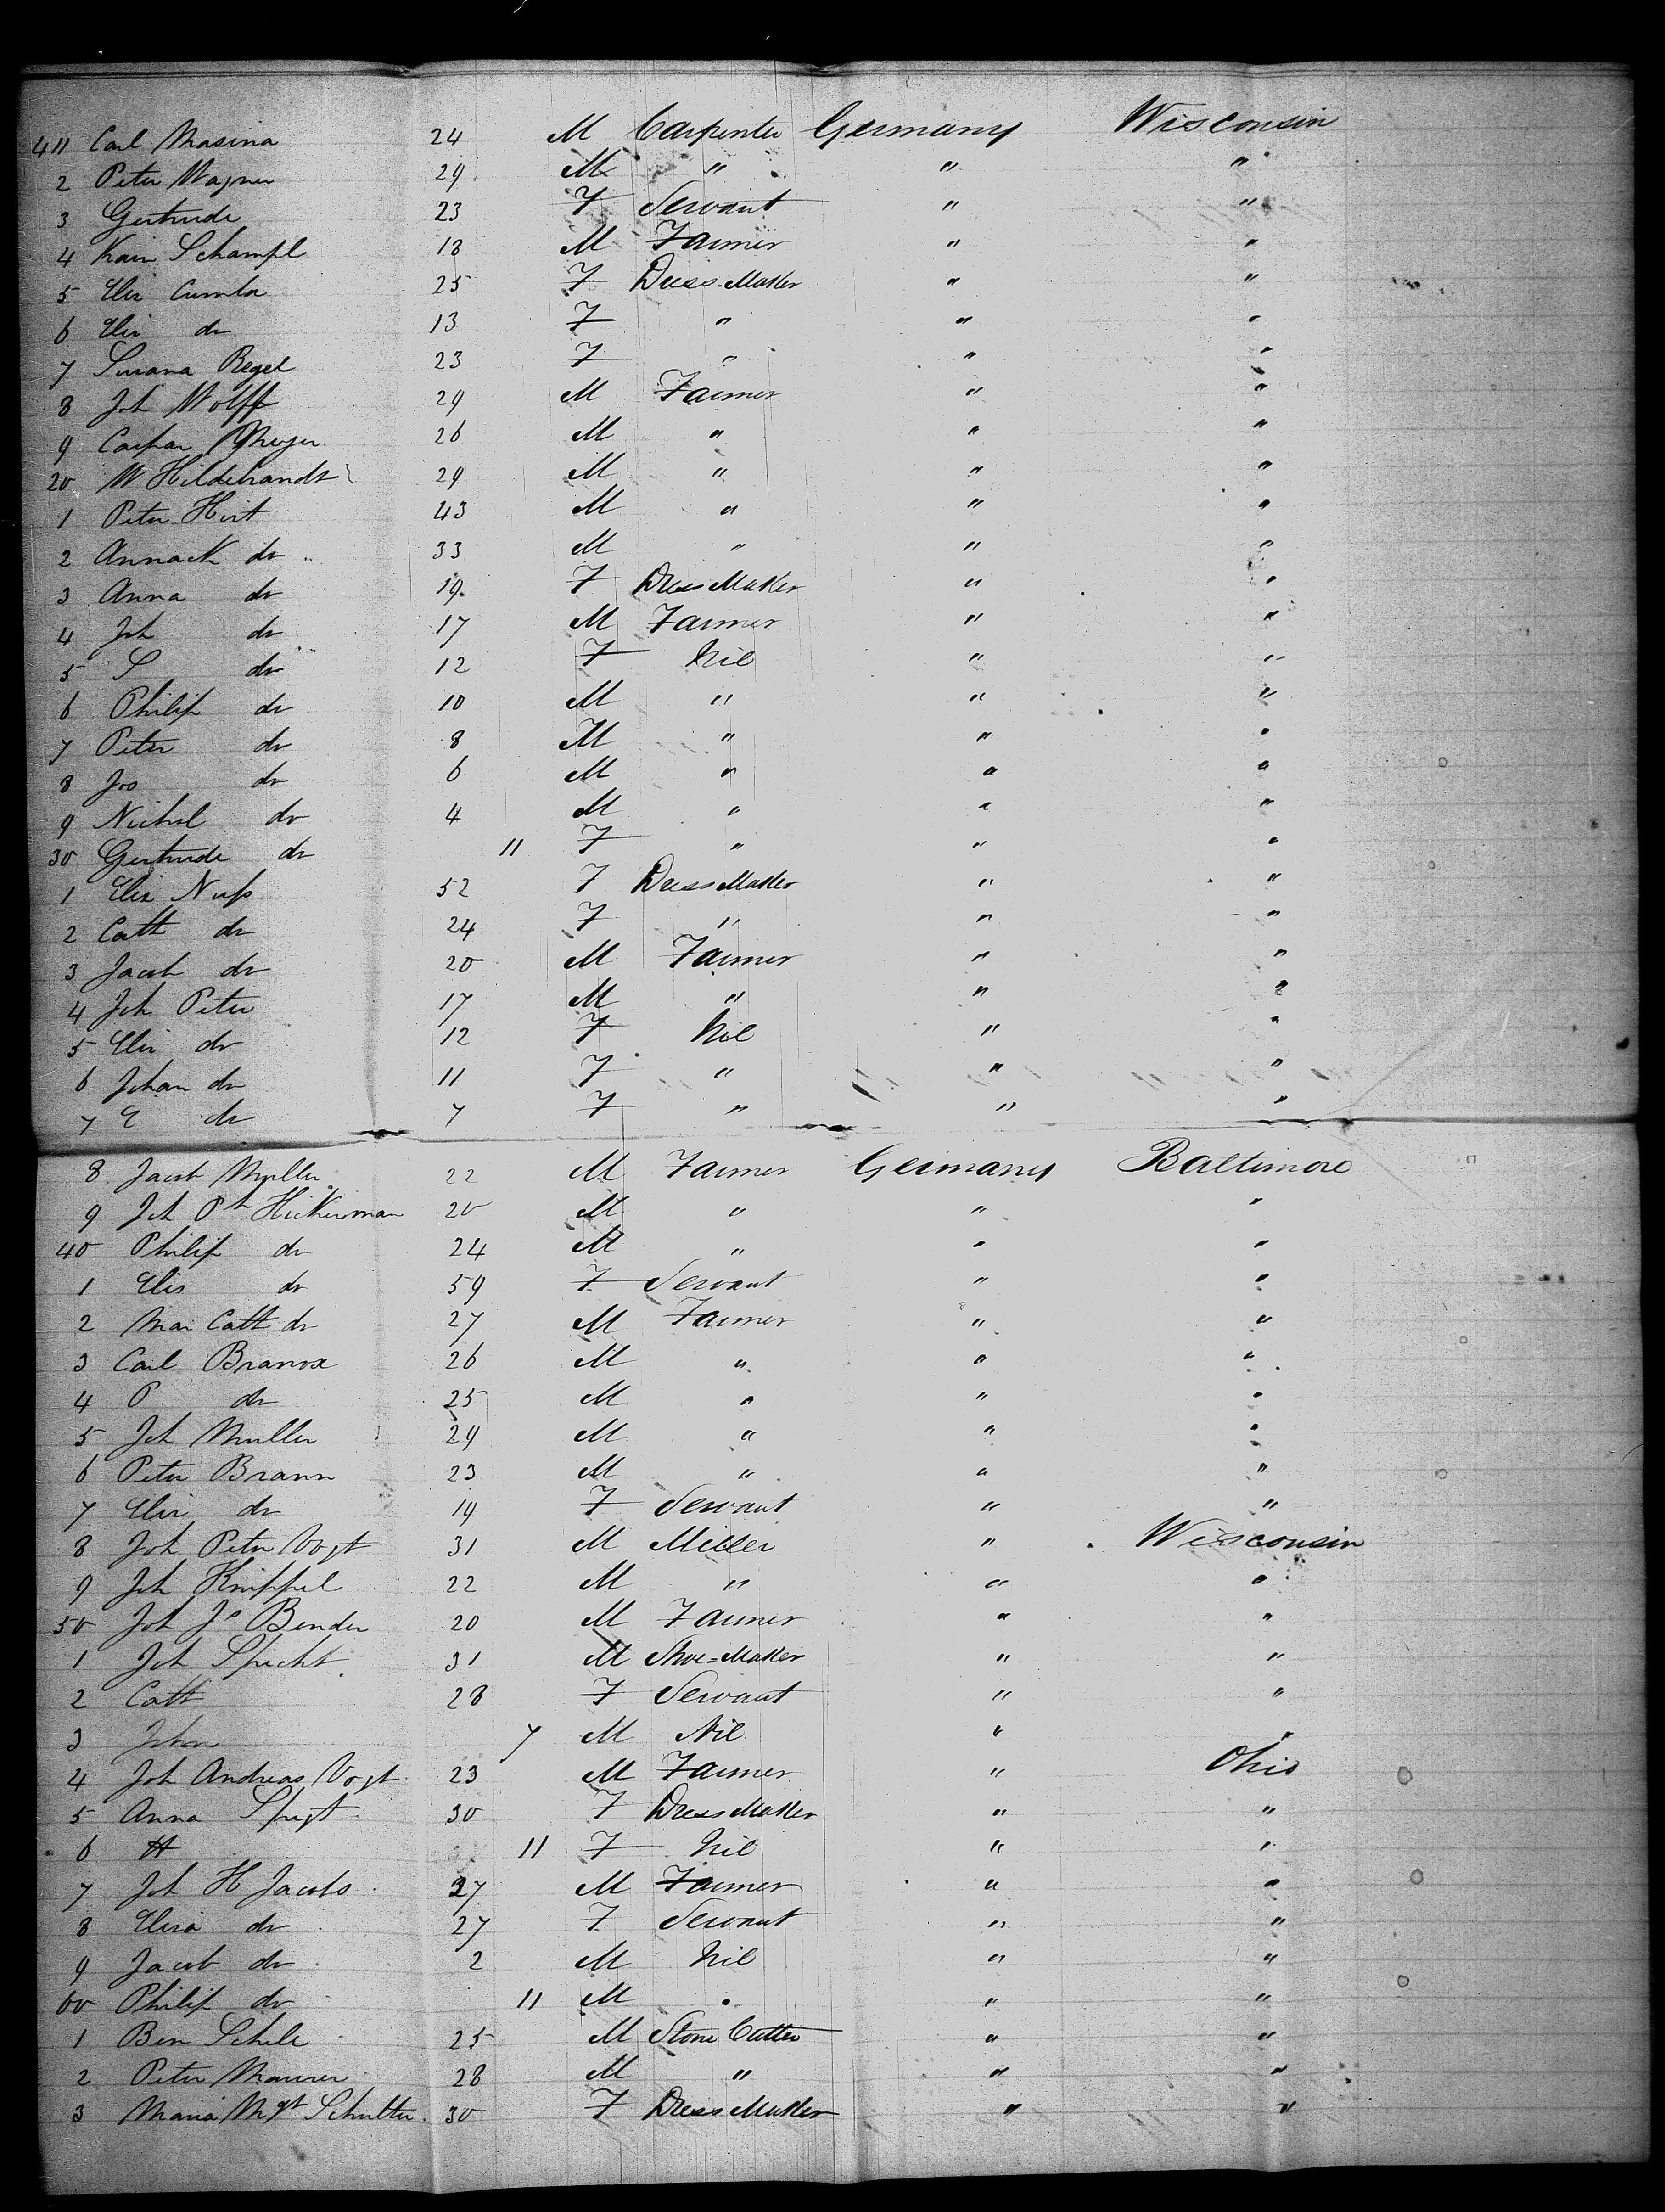 411 Carl Masina 24 M Carpenter Germany Wisconsin
2 Peter Wagner 29 M " " "
3 Gertrude 23 F Servant " "
4 Schampl 18 M Farmer " "
5 Elis Cumla 25 F Dress-Maker " "
6 Elis do 13 F " " "
7 Susana Regel 23 F " " "
8 Joh Wolff 29 M Farmer " "
9 Caspar Meyer 26 M " " "
20 W Hildebrandt 29 M " " "
1 Peter Hirt 43 M " " "
2 do 33 M " " "
3 Anna do 19 F Dress Maker " "
4 Joh do 17 M Farmer " "
5 S do 12 F Nil " "
6 Philip do 10 M " " "
7 Peter do 8 M " " "
8 Jos do 6 M " " "
9 Nichol do 4 M " " "
30 Gertrude do 11 F " " "
1 Elis 52 F Dress Maker " "
2 Cath do 24 F " " "
3 Jacob do 20 M Farmer " "
4 Joh Peter 17 M " " "
5 Elis do 12 F Nil " "
6 Johan do 11 F " " "
7 E do 7 F " " "
8 Jacob Muller 22 M Farmer Germany Baltimore
9 Joh Ph Hickerman 20 M " " "
40 Philip do 24 M " " "
1 Elis do 59 F Servant " "
2 Mar Cath do 27 M Farmer " "
3 Carl 26 M " " "
4 P do 25 M " " "
5 Joh Muller 29 M " " "
6 Peter Brann 23 M " " "
7 Elis do 19 F Servant " "
8 Joh Peter Vogt 31 M Miller " Wisconsin
9 Joh Knippel 22 M " " "
50 Joh Js Bender 20 M Farmer " "
1 Joh Specht 31 M Shoe=Maker " "
2 Cath 28 F Servant " "
3 Johan 7 M Nil " "
4 Joh Andreas Vogt 23 M Farmer " Ohio
5 Anna 30 F Dress Maker " "
6 11 F Nil " "
7 Joh H Jacobs 27 M Farmer " "
8 Elisa do 27 F Servant " "
9 Jacob do 2 M Nil " "
60 Philip do 11 M " " "
1 Ben Schele 25 M Stone Cutter " "
2 Peter Maurer 28 M " " "
3 Maria Mgt Schulter 30 F Dress Maker " "